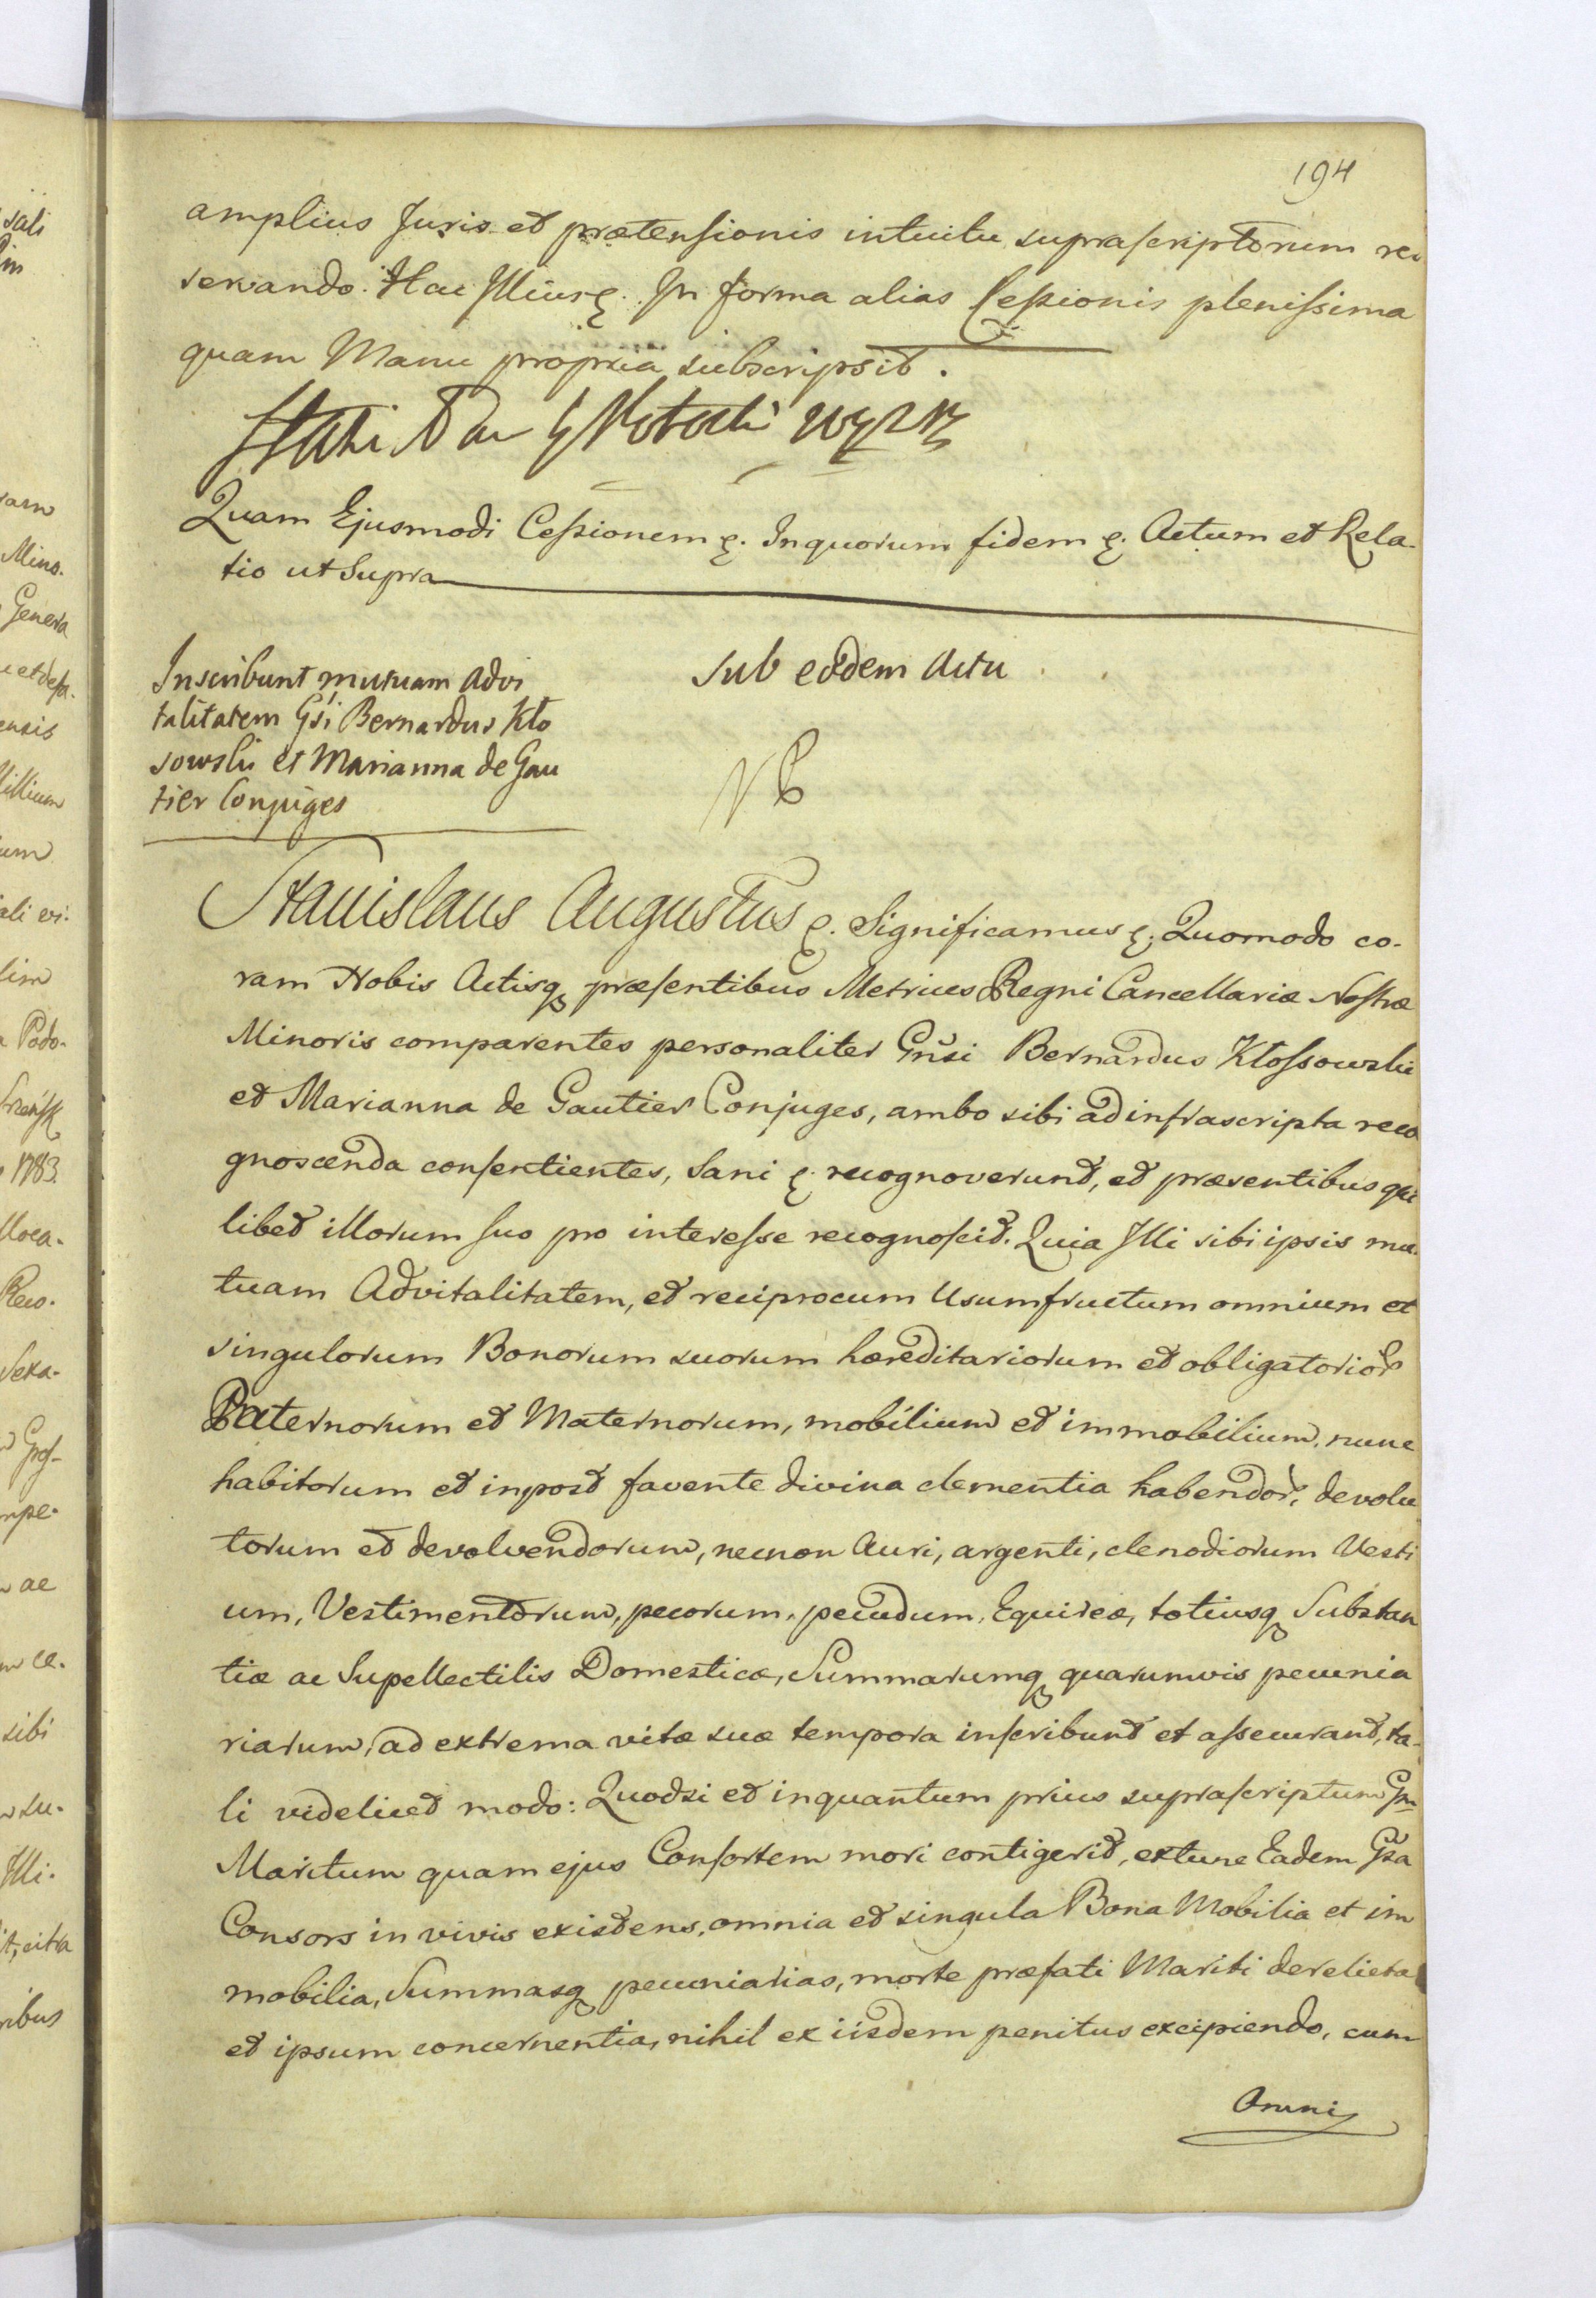 194
amplius Juris et prætensionis intuitu suprascriptorum re
servando. Hac Illius &. In forma alias Cessionis plenissima
quam Manu propria subscripsit.
Quam Ejusmodi Cessionem &. Inquorum fidem &. Actum et Rela-
tio ut Supra
Inscribunt mutuam Advi
talitatem Gsi Bernardus Kło
sowski et Marianna de Gau
tier Conjuges
Sub eodem Actu
Stanislaus Augustus &. Significamus &. Quomodo co-
ram Nobis Actisq præsentibus Metrices Regni Cancellariæ Nostræ
Minoris comparentes personaliter Gnsi Bernardus Kłossowski
et Marianna de Gautier Conjuges, ambo sibi ad infrascripta reco
gnoscenda consentientes, Sani &. recognoverunt, et præsentibus qui
libet illorum suo pro interesse recognoscit. Quia Illi sibi ipsis mu-
tuam Advitalitatem, et reciprocum Usumfructum omnium et
singulorum Bonorum suorum hæreditariorum et obligatorior
Paternorum et Maternorum, mobilium et immobilium, nunc
habitorum et inpost favente divina clementia habendor, devolu
torum et devolvendorum, necnon Auri, argenti, clenodiorum Vesti
um, Vestimentorum, pecorum, pecudum, Equireæ, totiusq Substan
tiæ ac Supellectilis Domesticæ, Summarumq quarumvis pecunia
riarum, ad extrema vitæ suæ tempora inscribunt et assecurant, ta-
li videlicet modo: Quodsi et inquantum prius suprascriptum Gm
Maritum quam ejus Consortem mori contigerit, extunc Eadem Gsa
Consors in vivis existens, omnia et singula Bona Mobilia et im
mobilia, Summasq pecuniarias, morte præfati Mariti derelicta
et ipsum concernentia, nihil ex iisdem penitus excipiendo, cum
Omni